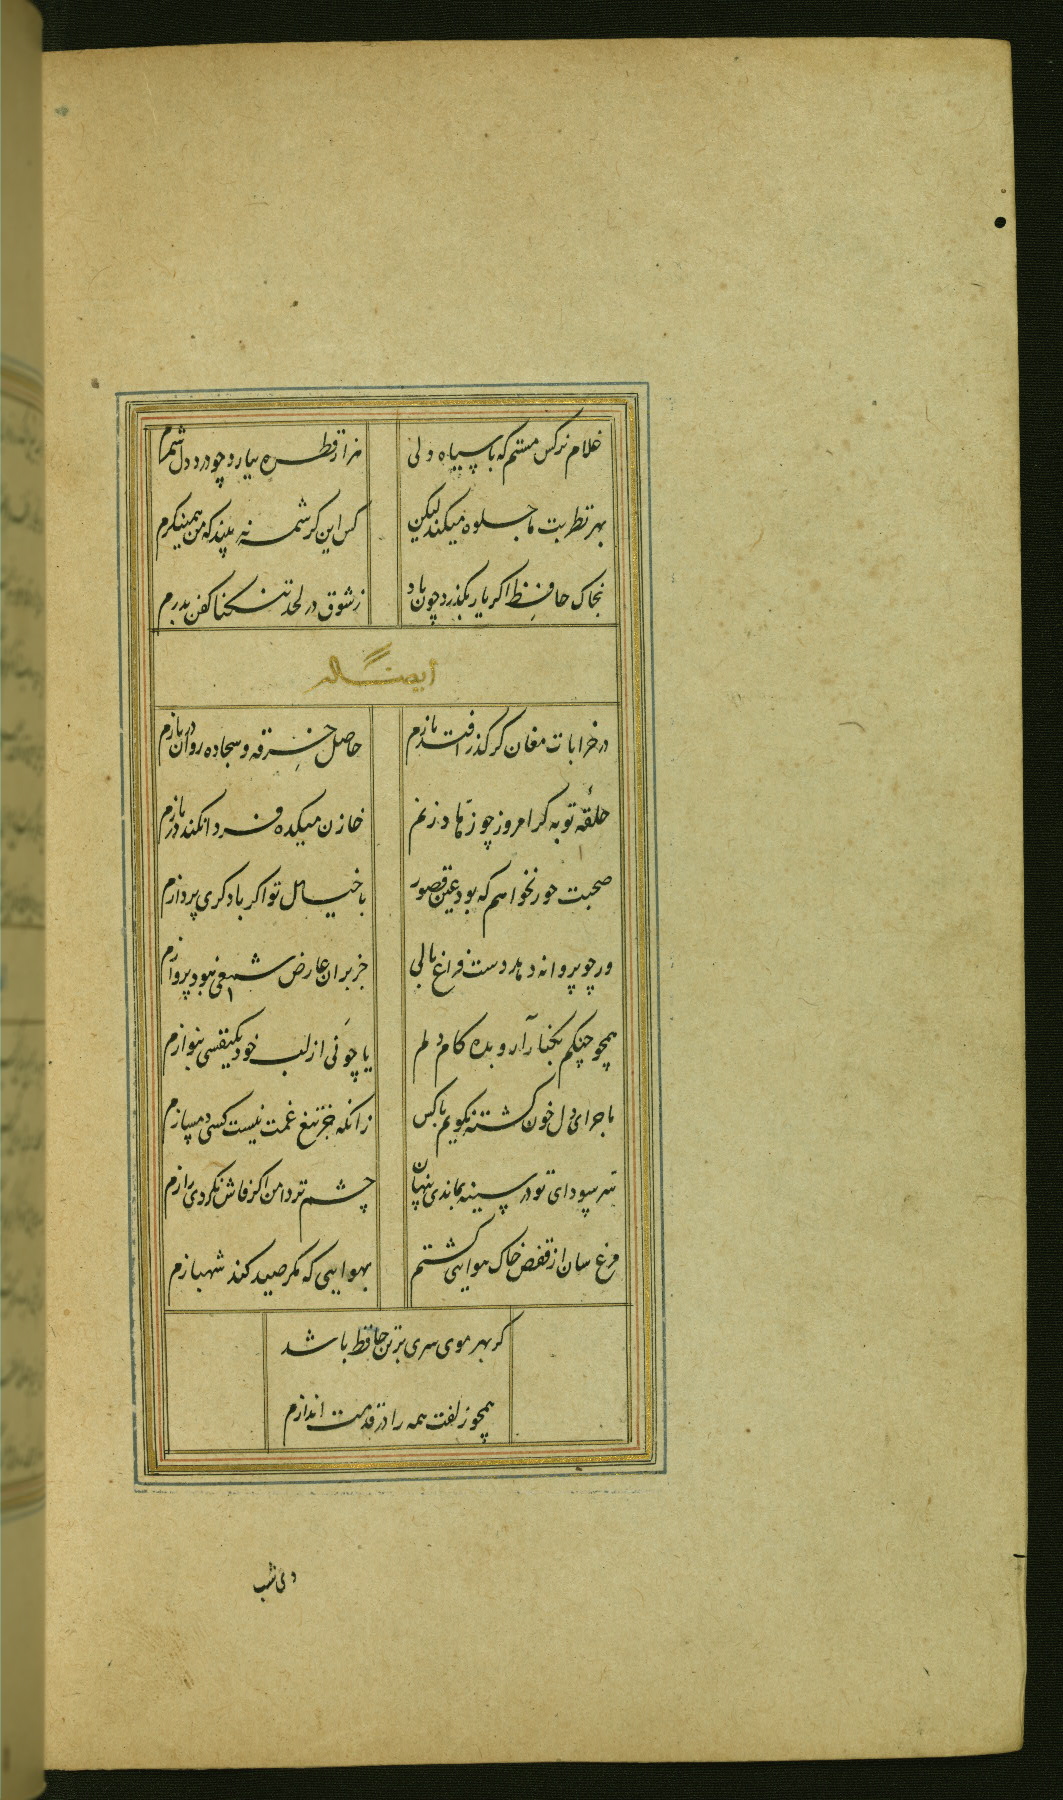 غلام نرکس مستم که با سیاه دلی
هزار قطره ببارد چو درد دل شمرم
بهر نظر بت ما جلوه میکند لیکن
کس این کرشمه نه بیند که من همینکرم
بخاک حافظ اکر یار بکذرد چون باد
ز شوق در لحد تنکنا کفن بدرم
ایضاً له
در خرابات مغان کر کذر افتد بازم
حاصل خرقه و سجاده روان دربازم
حلقه توبه کر امروز چو زهاد زنم
خازن میکده فردا نکند در بازم
صحبت حور نخواهم که بود عین قصور
با خیال تو اکر با دکری پردازم
ور چو پروانه دهد دست فراغ بالی
جز بران عارض شمعی نبود پروازم
همچو چنکم بکنار آر و بده کام دلم
یا چو نی از لب خود یکنفسی بنوازم
ماجرای دل خون کشته نکویم با کس
زانکه جز تیغ غمت نیست کسی دمسازم
سر سودای تو در سینه بماندی پنهان
چشم تردامن اکر فاش نکردی رازم
مرغ سان از قفص خاک هوایی کشتم
بهوایی که مکر صید کند شهبازم
کر بهر موی سری بر تن حافظ باشد
همچو زلفت همه را در قدمت اندازم
دی شب